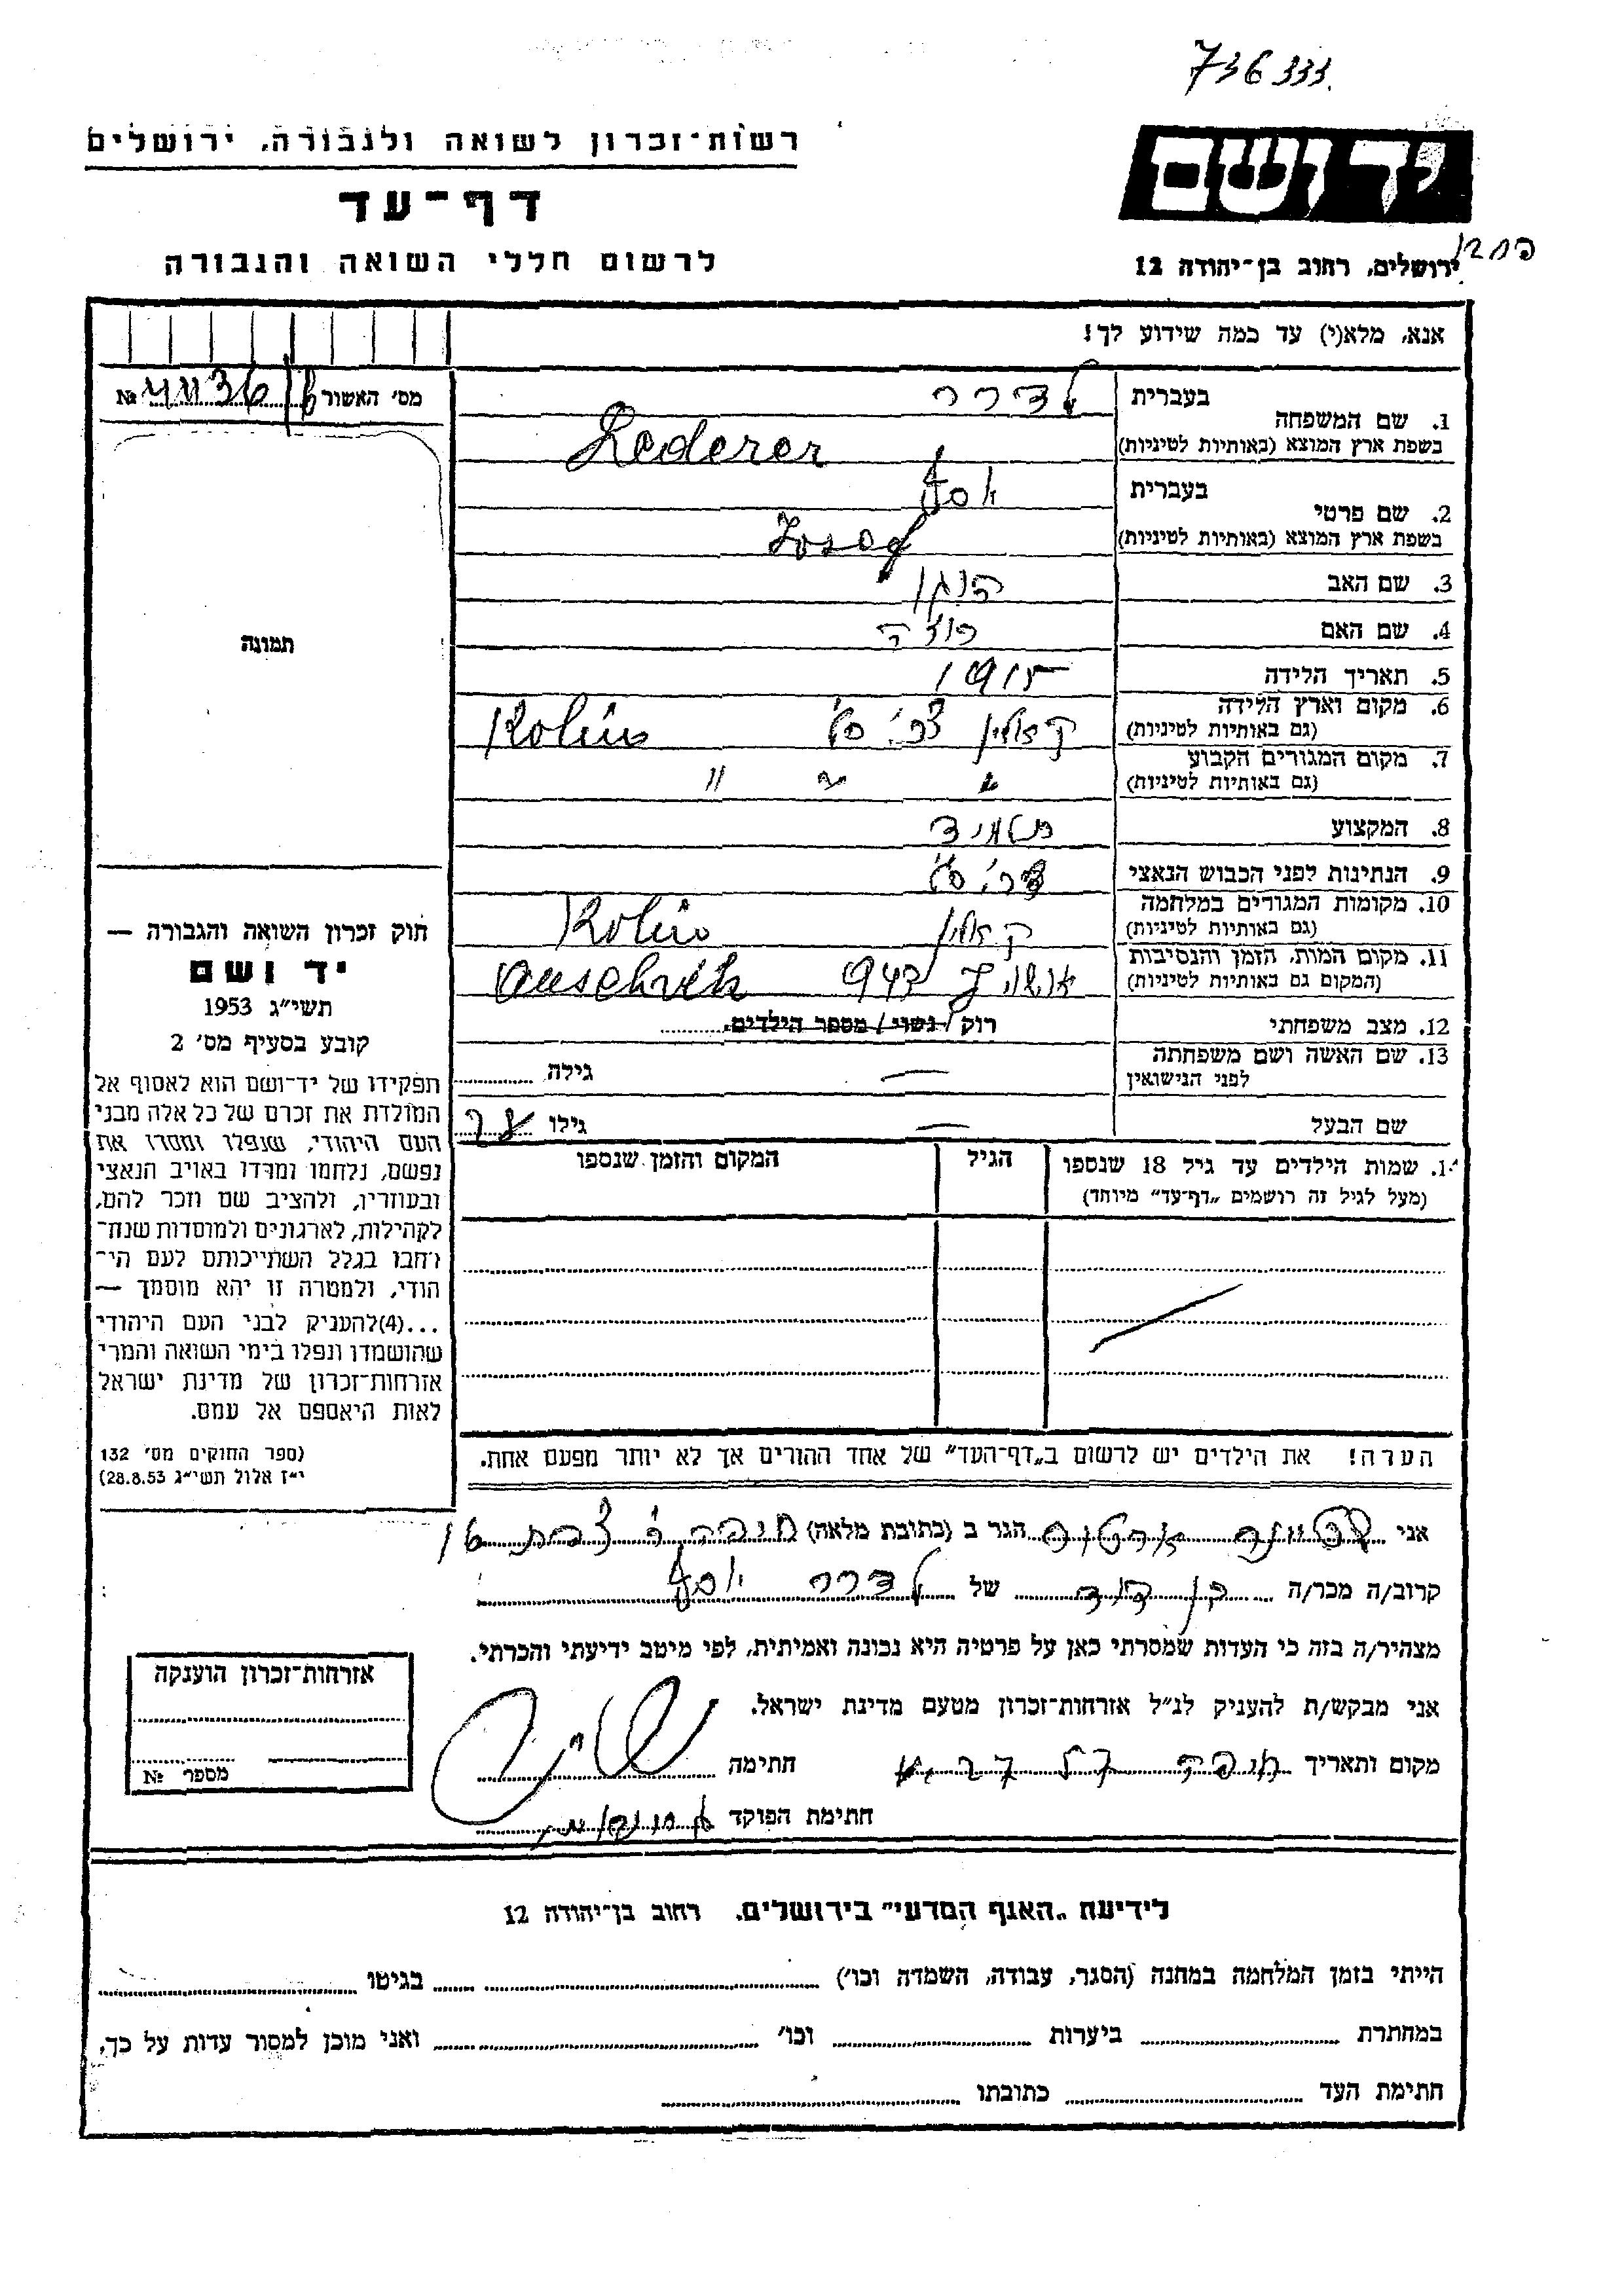 736333
רשות-זכרון לשואה ולגבורה, ירושלים
יד ושם
דף-עד
לרשום חללי השואה והגבורה
ירושלים, רחוב בן-יהודה 12
אנא, מלא(י) עד כמה שידוע לך!
מס' האשור №
1. שם המשפחה בעברית לדרר
בשפת ארץ המוצא (באותיות לטיניות) Lederer
2. שם פרטי בעברית
בשפת ארץ המוצא (באותיות לטיניות) Josef
3. שם האב
4. שם האם
תמונה
5. תאריך הלידה 1915
6. מקום וארץ הלידה
(גם באותיות לטיניות) Kolin
7. מקום המגורים הקבוע
(גם באותיות לטיניות) " " "
8. המקצוע
9. הנתינות לפני הכבוש הנאצי
10. מקומות המגורים במלחמה
(גם באותיות לטיניות) Kolin
11. מקום המות, הזמן והנסיבות
(המקום גם באותיות לטיניות) 943
12. מצב משפחתי רוק / נשוי / מספר הילדים
13. שם האשה ושם משפחתה
לפני הנישואין גילה
שם הבעל גילו
1. שמות הילדים עד גיל 18 שנספו הגיל המקום והזמן שנספו
(מעל לגיל זה רושמים „דף-עד" מיוחד)
חוק זכרון השואה והגבורה —
יד ושם
תשי"ג 1953
קובע בסעיף מס' 2
תפקידו של יד-ושם הוא לאסוף אל
המולדת את זכרם של כל אלה מבני
העם היהודי, שנפלו ומסרו את
נפשם, נלחמו ומרדו באויב הנאצי
ובעוזריו, ולהציב שם וזכר להם,
לקהילות, לארגונים ולמוסדות שנח-
רחבו בגלל השתייכותם לעם הי-
הודי, ולמטרה זו יהא מוסמך —
...(4)להעניק לבני העם היהודי
שהושמדו ונפלו בימי השואה והמרי
אזרחות-זכרון של מדינת ישראל
לאות היאספם אל עמם.
(ספר החוקים מס' 132
י"ז אלול תשי"ג 28.8.53)
הערה! את הילדים יש לרשום ב„דף-העד" של אחד ההורים אך לא יותר מפעם אחת.
אני הגר ב (כתובת מלאה)
קרוב/ה מכר/ה בן דוד של לדרר יוסף
מצהיר/ה בזה כי העדות שמסרתי כאן על פרטיה היא נכונה ואמיתית, לפי מיטב ידיעתי והכרתי.
אני מבקש/ת להעניק לנ"ל אזרחות-זכרון מטעם מדינת ישראל.
מקום ותאריך חיפה חתימה
חתימת הפוקד
אזרחות-זכרון הוענקה
מספר №
לידיעת „האגף המדעי" בירושלים, רחוב בן-יהודה 12
הייתי בזמן המלחמה במחנה (הסגר, עבודה, השמדה וכו') בגיטו
במחתרת ביערות וכו' ואני מוכן למסור עדות על כך,
חתימת העד כתובתו